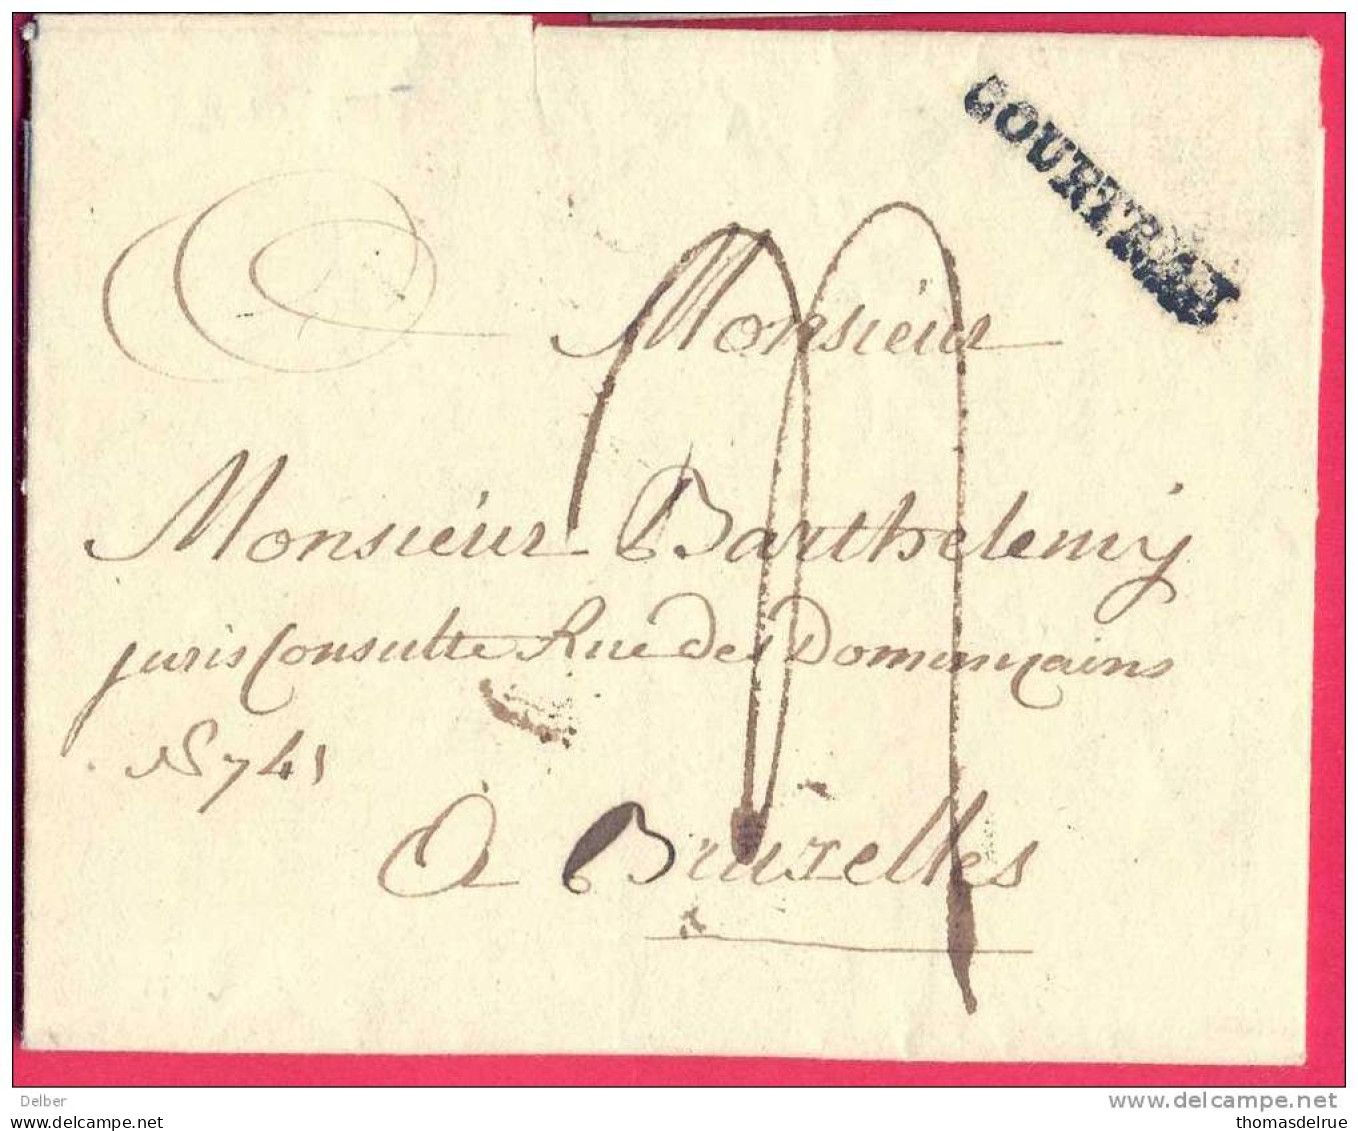 COURTRAY
Monsieur
Monsieur Barthelemij
jurisconsulte Rue des Dominiçains
No 741
à Bruxelles
Delber
www.delcampe.net
www.delcampe.net
thomasdelrue